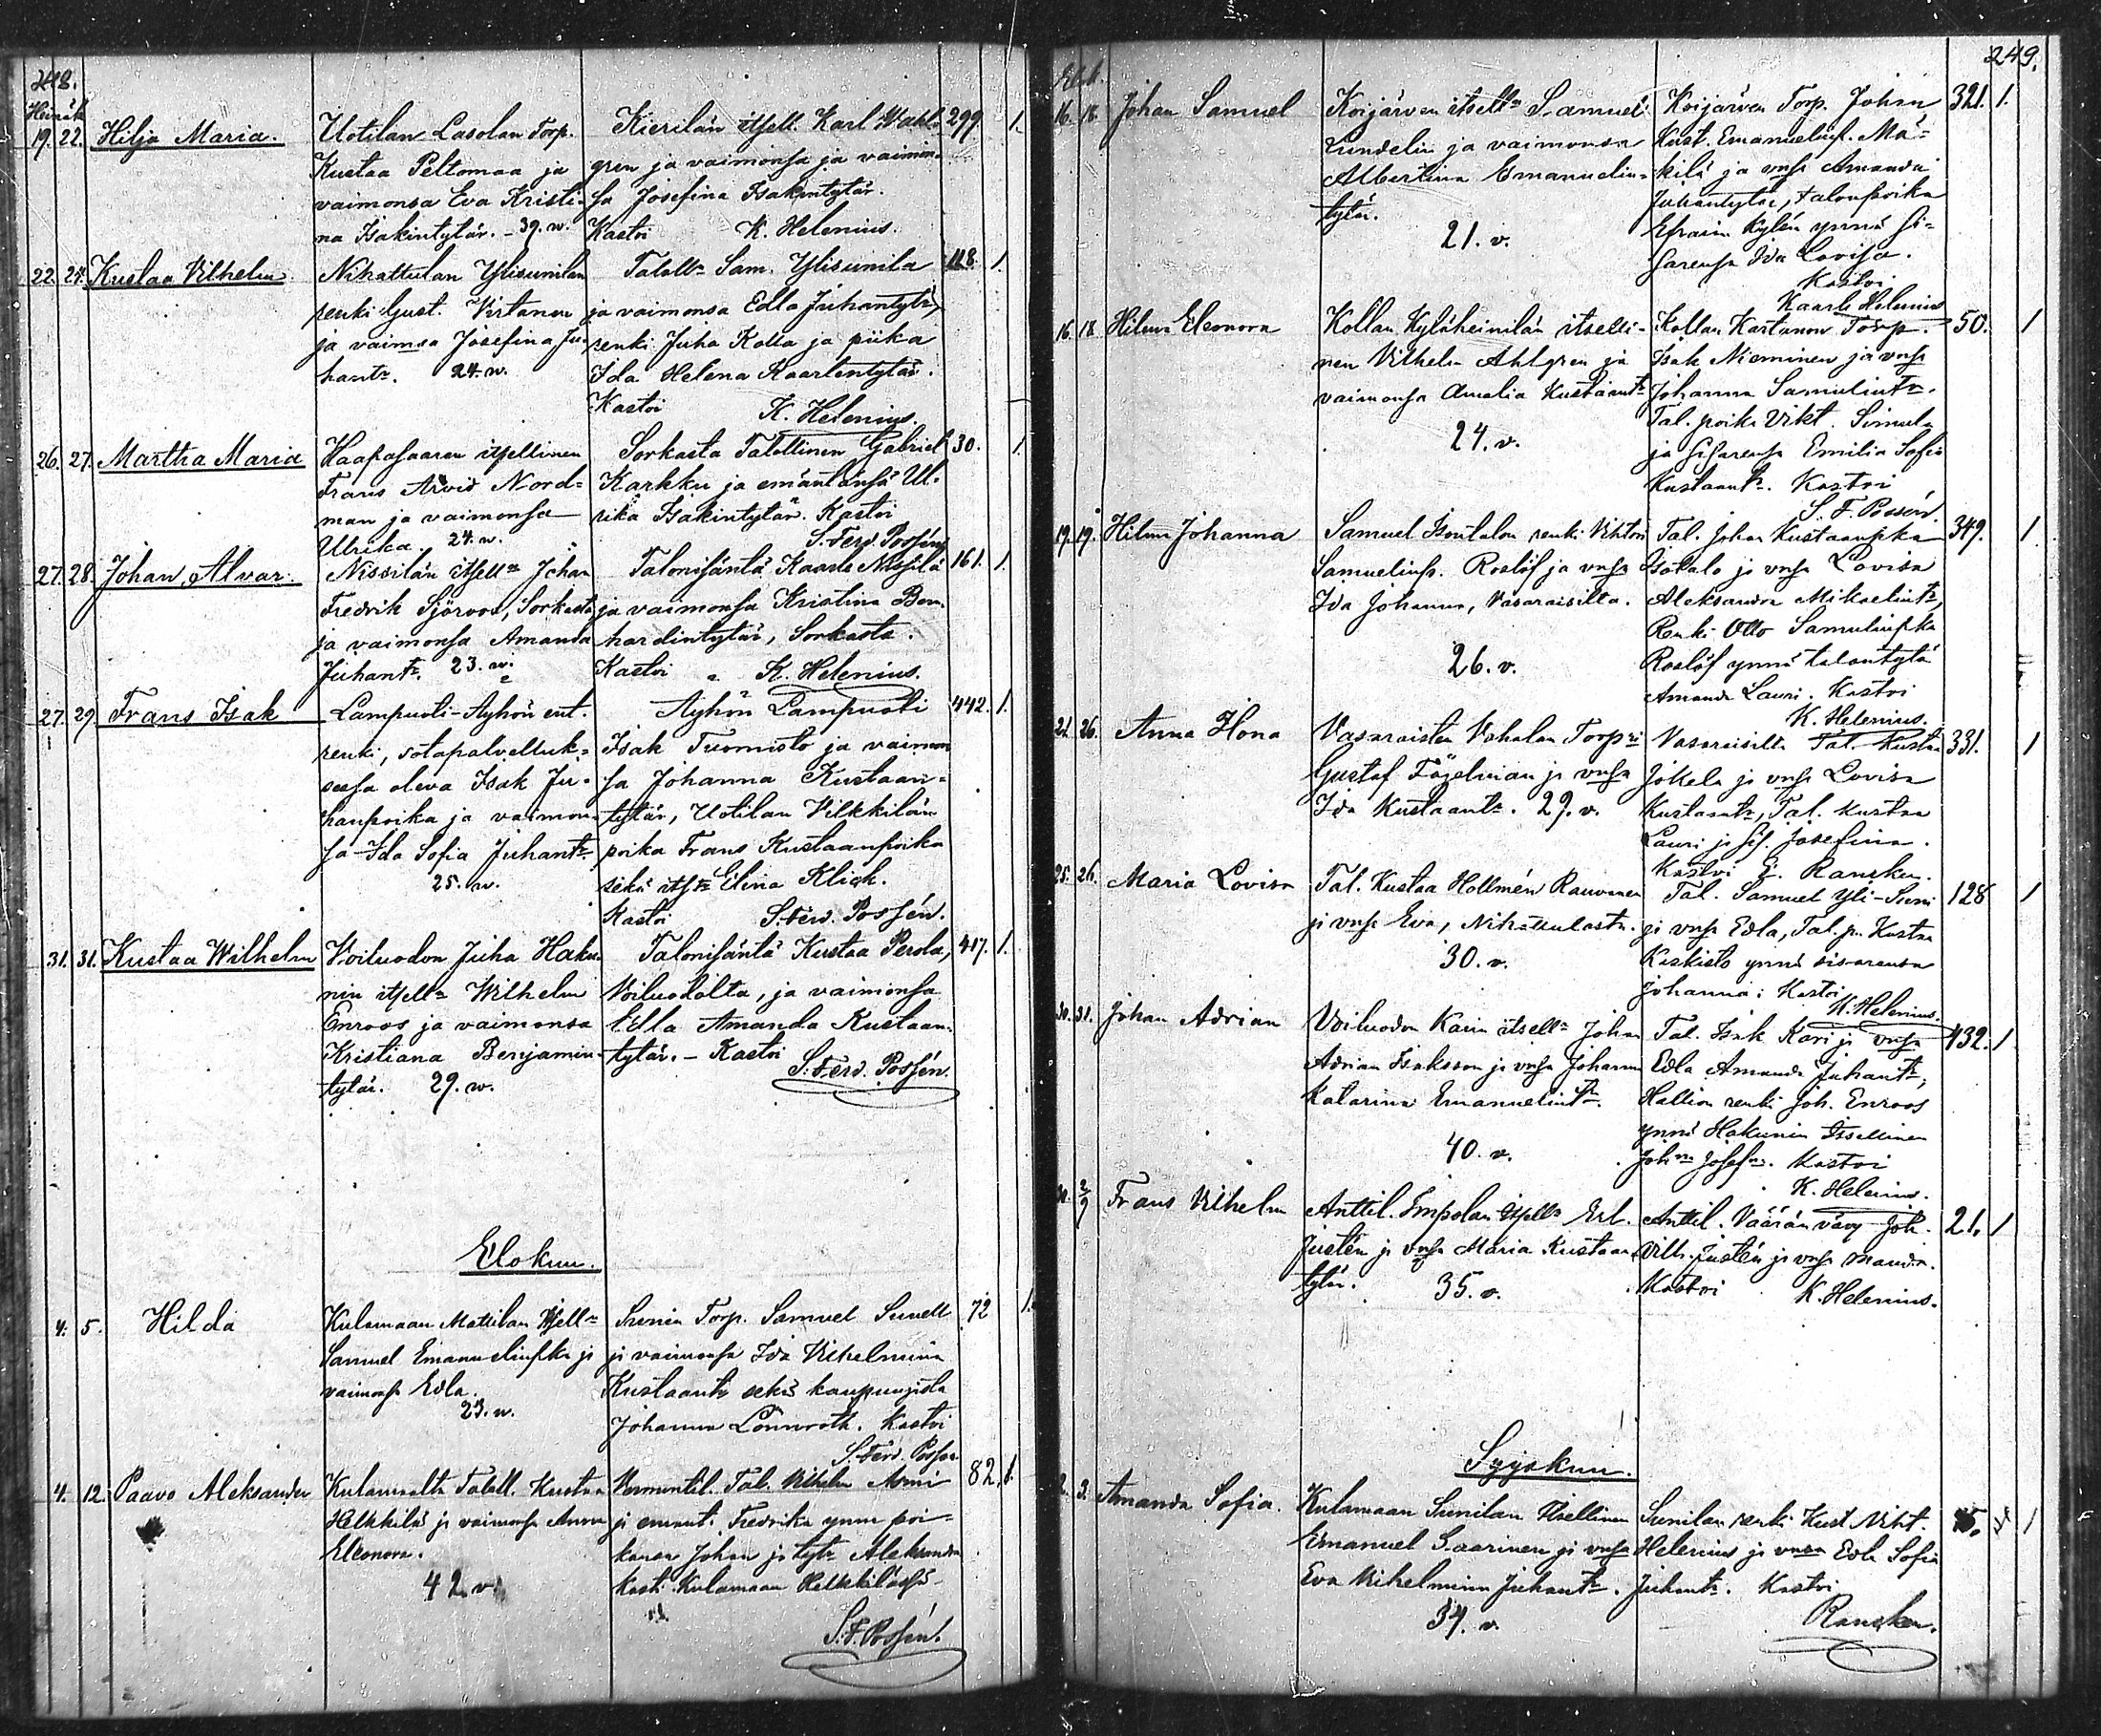 248.
Heinäk
19. 22. Hilja Maria.
Uotilan Lasolan Torp.
Kustaa Peltomaa ja
vaimonsa Eva Kristi-
na Isakintytär. - 39. w.
Kierilän itsell. Karl Wahl-
gren ja vaimonsa ja vaimon-
sa Josefina Isakintytär.
Kastoi K. Helenius.
299 1.
22. 24. Kustaa Vilhelm
Nihattulan Ylisunilan
renki Gust. Virtanen
ja vaimsa Josefina Ju-
hantr. 24. w.
Talollr Sam. Ylisunila
ja vaimonsa Edla Juhantytr,
renki Juha Kolla ja piika
Ida Helena Kaarlentytär.
Kastoi K. Helenius.
118. 1.
26. 27. Martha Maria
Haapasaaren itsellinen
Frans Arvid Nord-
man ja vaimonsa
Ulrika. 24. w.
Sorkasta Talollinen Gabriel
Karkku ja emäntänsä Ul-
rika Isakintytär. Kastoi
S. Ferd. Possén
30. 1.
27. 28. Johan Alvar.
Nissilän itsellr Johan
Fredrik Sjöroos, Sorkasta
ja vaimonsa Amanda
Juhantr. 23. w.
Talonisäntä Kaarle Nissilä
ja vaimonsa Kristina Bern-
hardintytär, Sorkasta.
Kastoi K. Helenius.
161. 1.
27. 29. Frans Isak
Lampuoti-Äyhön ent.
renki, sotapalvelluk-
sessa oleva Isak Ju-
hanpoika ja vaimon-
sa Ida Sofia Juhantr.
25. w.
Äyhön Lampuoti
Isak Tuomisto ja vaimon
sa Johanna Kustaan-
tytär, Uotilan Vilkkilän
poika Frans Kustaanpoika
sekä itsr Elina Klick.
Kastoi S. Ferd. Possén.
442. 1.
31. 31. Kustaa Wilhelm
Voiluodon Juha Haku-
nin itsellr Wilhelm
Enroos ja vaimonsa
Kristiana Benjamin-
tytär. 29. w.
Talonisäntä Kustaa Perola,
Voiluodolta, ja vaimonsa
Edla Amanda Kustaan-
tytär. - Kastoi
S. Ferd. Possén.
417. 1.
Elokuu.
4. 5. Hilda
Kulamaan Mattilan Itsellr
Samuel Emanuelinpka ja
vaimonsa Edla.
23. w.
Sunin Torp. Samuel Sunell
ja vaimonsa Ida Vilhelmiina
Kustaantr sekä kaupungista
Johanna Lönnroth. Kastoi
S. Ferd. Possen
72 1.
4. 12. Paavo Aleksander
Kulamaalta Taloll. Kustaa
Heikkilä ja vaimonsa Anna
Eleonora.
42 v.
Vermuntil. Tal. Vilhelm Armi
ja emänt. Fredrika ynnä poi-
kansa Johan ja tytr Aleksandra
Kast. Kulamaan Heikkilässä
S. F. Possén.
82. 1.
249.
Elok.
16. 18. Johan Samuel
Koijärven itsellr Samuel
Lundelin ja vaimonsa
Albertina Emanuelin-
tytär.
21. v.
Koijärven Torp. Johan
Kust. Emanuelinp. Mä-
kilä ja vnsa Amanda
Juhantytär, talonpoika
Efraim Kylén ynnä si-
sarensa Ida Lovisa.
Kastoi
Kaarle Helenius
321. 1.
16. 18. Hilma Eleonora
Kollan Kyläheinilän itselli-
nen Vilhelm Ahlgren ja
vaimonsa Amalia Kustaantr
24. v.
Kollan Kartanon Torp.
Isak Nieminen ja vnsa
Johanna Samulintr.
Tal. poika Vikt. Simula
ja sisarensa Emilia Sofia
Kustaantr. Kastoi
S. F. Possén
50. 1
19. 19. Hilma Johanna
Samuel Isontalon renki Vihtori
Samuelinp. Roslöf ja vnsa
Ida Johanna, Vasaraisilta.
26. v.
Tal. Johan Kustaanpka
Isotalo ja vnsa Lovisa
Aleksandra Mikaelintr,
Renki Otto Samulinpka
Roslöf ynnä talontytä
Amanda Lauri. Kastoi
K. Helenius.
349. 1
21. 26. Anna Ilona
Vasaraisten Vahalan Torpri
Gustaf Fögelman ja vnsa
Ida Kustaantr. 29. v.
Vasaraisilta Tal. Kustaa
Jokela ja vnsa Lovisa
Kustaantr, Tal. Kustaa
Lauri ja sis. Josefina.
Kastoi E. Rancken.
331. 1
25. 26. Maria Lovisa
Tal. Kustaa Hollmén Rauvanen
ja vnsa Eva, Nihattulasta.
30. v.
Tal. Samuel Yli-Suni
ja vnsa Edla, Tal. p. Kustaa
Keskisto ynnä sisarensa
Johanna; Kastoi
K. Helenius.
128 1
30. 31. Johan Adrian
Voiluodon Karin itsellr Johan
Adrian Isaksson ja vnsa Johanna
Katarina Emanuelintr.
40. v.
Tal. Isak Kari ja vnsa
Edla Amanda Juhantr,
Hallion renki Joh. Enroos
ynnä Hakunin Itsellinen
Johna Josefna. Kastoi
K. Helenius.
432. 1
30. 2/9 Frans Vilhelm
Anttil. Impolan itsellr Erl.
Justén ja vnsa Maria Kustaan-
tytär. 35. v.
Anttil. Väärän vävy Joh.
Vilh. Justén ja vnsa Manda.
Kastoi K. Helenius.
21. 1
Syyskuu.
2. 3. Amanda Sofia.
Kulamaan Sunilan Itsellinen
Emanuel Saarinen ja vnsa
Eva Vilhelmina Juhantr.
34. v.
Sunilan renki Kust Niht.
Helenius ja vnsa Edla Sofia
Juhantr. Kastoi
Rancken.
1